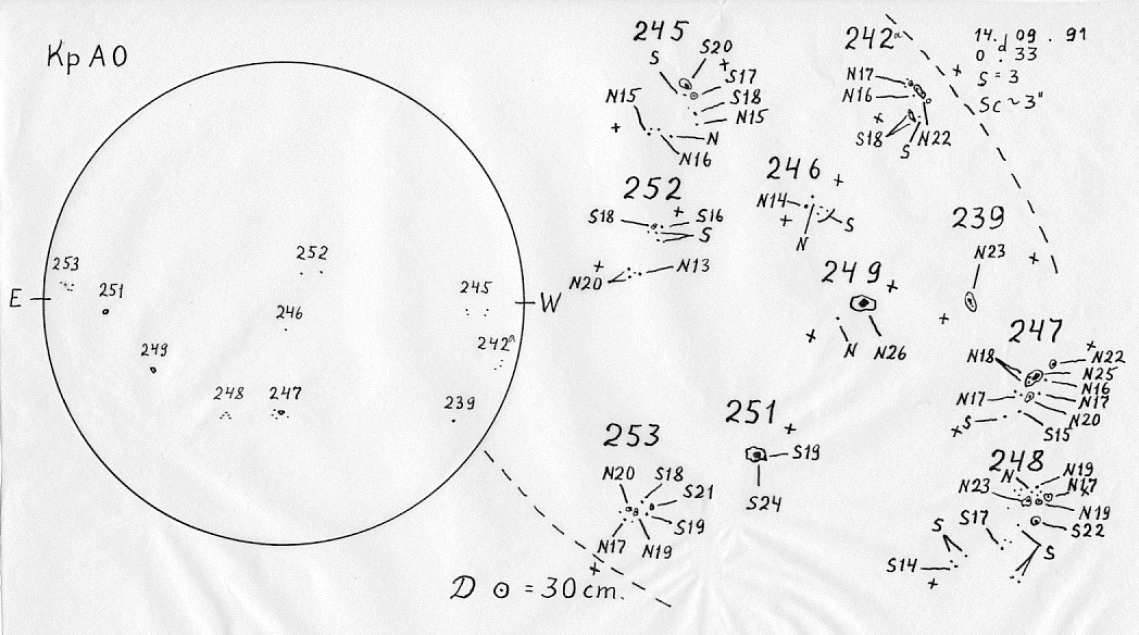 Kp AO
E
W
253
251
249
252
246
248
247
245
242ª
239
245
S
S20
S17
S18
N15
N15
N
N16
242ª
N17
N16
S18
S
N22
14. d 09 . 91
0 . 33
S = 3
Sc ~ 3"
252
S18
S16
S
N20
N13
246
N14
N
S
239
N23
249
N
N26
247
N18
N22
N25
N16
N17
N17
N20
S
S15
251
S19
S24
253
N20
S18
S21
S19
N17
N19
248
N
N19
N17
N23
N19
S22
S17
S
S
S14
D ⊙ = 30 cm.